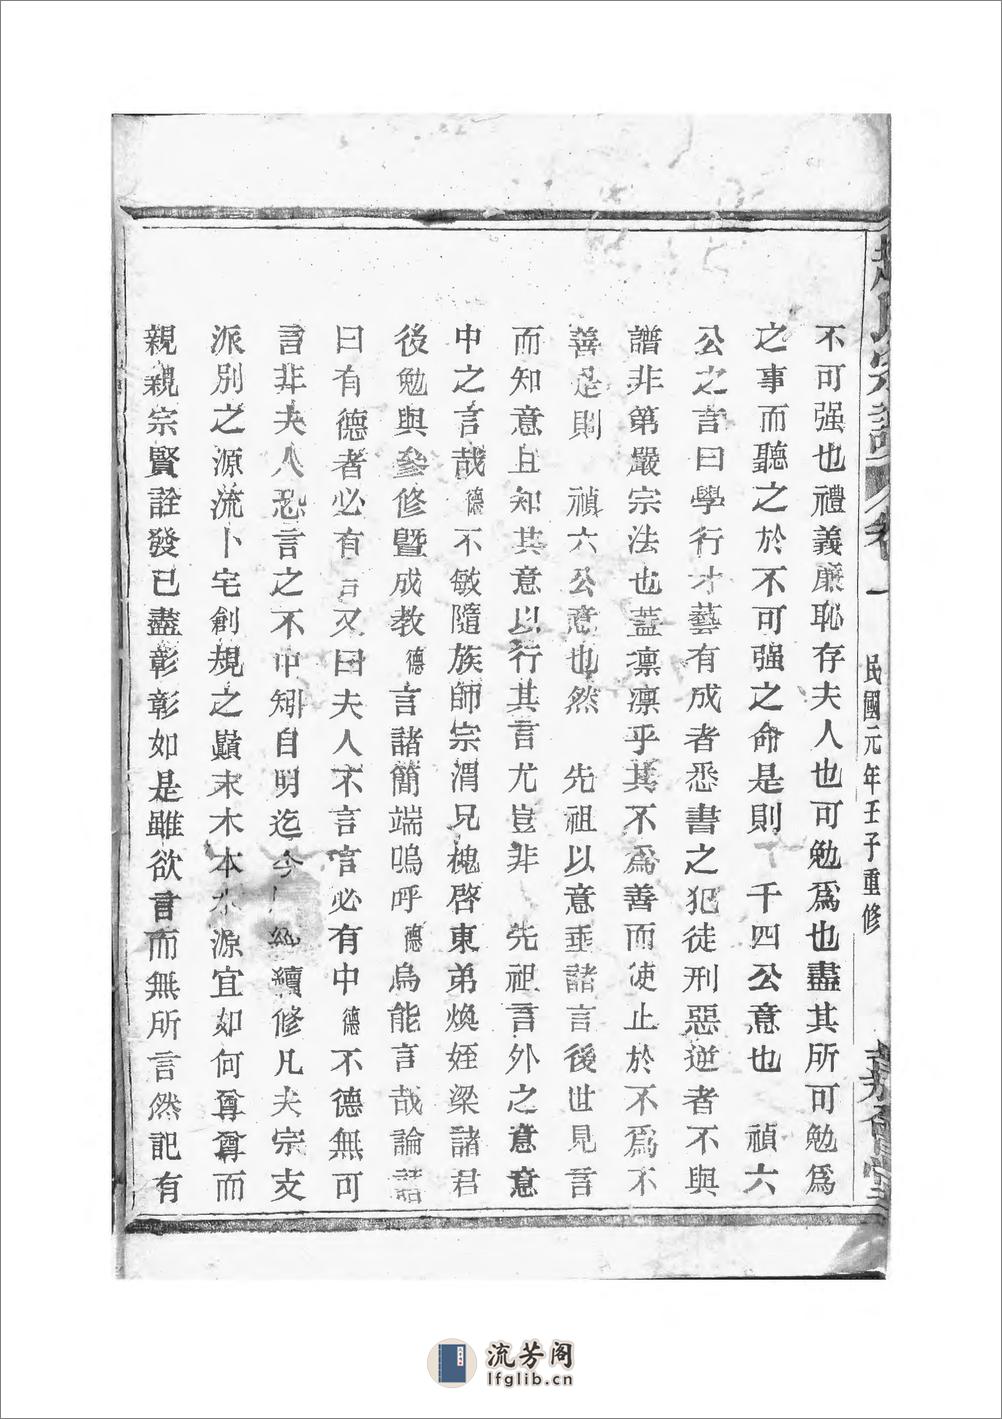 氏宗譜 卷一 民國元年壬子重修 堂
不可强也禮義廉恥存夫人也可勉爲也盡其所可勉爲
之事而聽之於不可强之命是則 千四公意也 禎六
公之言曰學行才藝有成者悉書之犯徒刑惡逆者不與
譜非第嚴宗法也蓋凛凛乎其不爲善而使止於不爲不
善是則 禎六公意也然 先祖以意垂諸言後世見言
而知意且知其意以行其言尤豈非 先祖言外之意意
中之言哉德不敏隨族師宗渭兄槐啓東弟煥姪梁諸君
後勉與參修暨成教德言諸簡端嗚呼德烏能言哉論語
曰有德者必有言又曰夫人不言言必有中德不德無可
言非夫人恐言之不中矧自明迄今 續修凡夫宗支
派別之源流卜宅創規之巔末木本水源宜如何尊尊而
親親宗賢詮發已盡彰彰如是雖欲言而無所言然記有
流芳阁
lfglib.cn